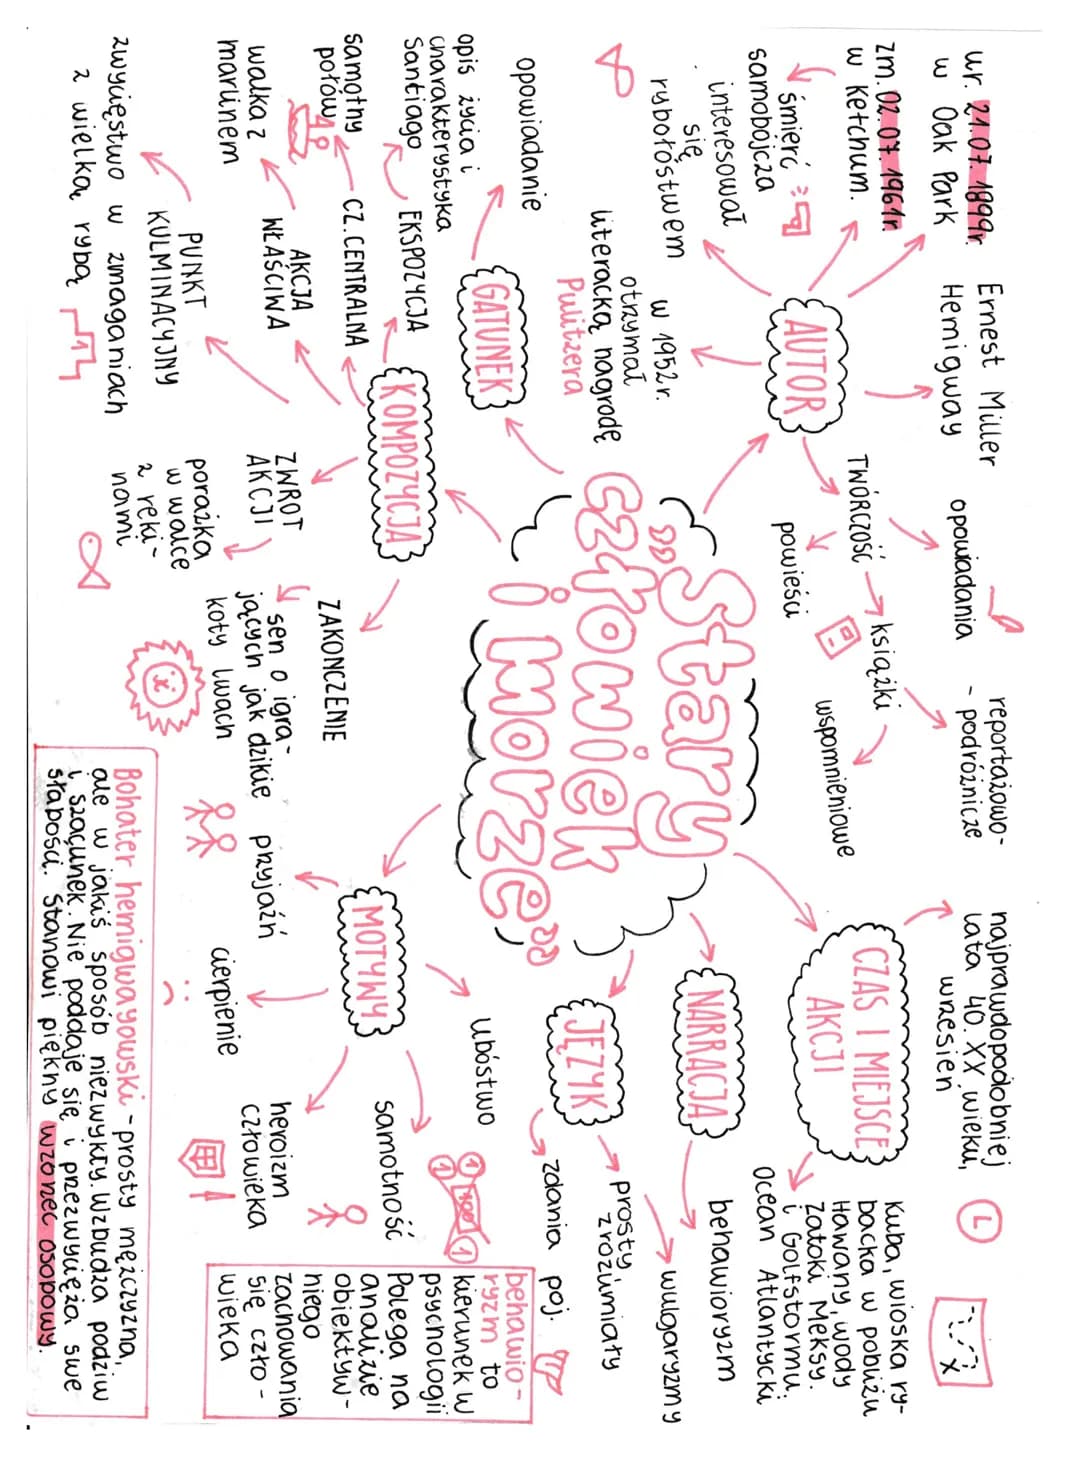 „Stary
człowiek
i morze"
AUTOR
Ernest Miller
Hemigway
ur. 21.07.1899r.
w Oak Park
zm. 02.07.1961r.
w Ketchum.
śmierć
samobójcza
interesował
się
rybołóstwem
w 1952r.
otrzymał
literacką nagrodę
Pulitzera
TWÓRCZOŚĆ
opowiadania
książki
powieści
reportażowo-
- podróżnicze
wspomnieniowe
CZAS I MIEJSCE
AKCJI
najprawdopodobniej
lata 40. XX wieku,
wrzesień
Kuba, wioska ry-
backa w pobliżu
Hawany, wody
Zatoki Meksy.
i Golfstormu,
Ocean Atlantycki
NARRACJA
behawioryzm
JĘZYK
wulgaryzmy
prosty,
zrozumiały
zdania poj.
GATUNEK
opowiadanie
KOMPOZYCJA
EKSPOZYCJA
opis życia i
charakterystyka
Santiago
CZ. CENTRALNA
samotny
połów
AKCJA
WŁAŚCIWA
walka z
marlinem
PUNKT
KULMINACYJNY
zwycięstwo w zmaganiach
z wielką rybą
1
ZWROT
AKCJI
porażka
w walce
z reki-
nami
ZAKOŃCZENIE
sen o igra-
jących jak dzikie
koty lwach
MOTYWY
przyjaźń
cierpienie
heroizm
człowieka
samotność
ubóstwo
1
100
1
1
behawio-
ryzm to
kierunek w
psychologii
Polega na
analizie
obiektyw-
niego
zachowania
się czło-
wieka
Bohater hemigwayowski - prosty mężczyzna,
ale w jakiś sposób niezwykły. Wzbudza podziw
i szacunek. Nie poddaje się i przezwycięża swe
słabości. Stanowi piękny wzorzec osobowy.